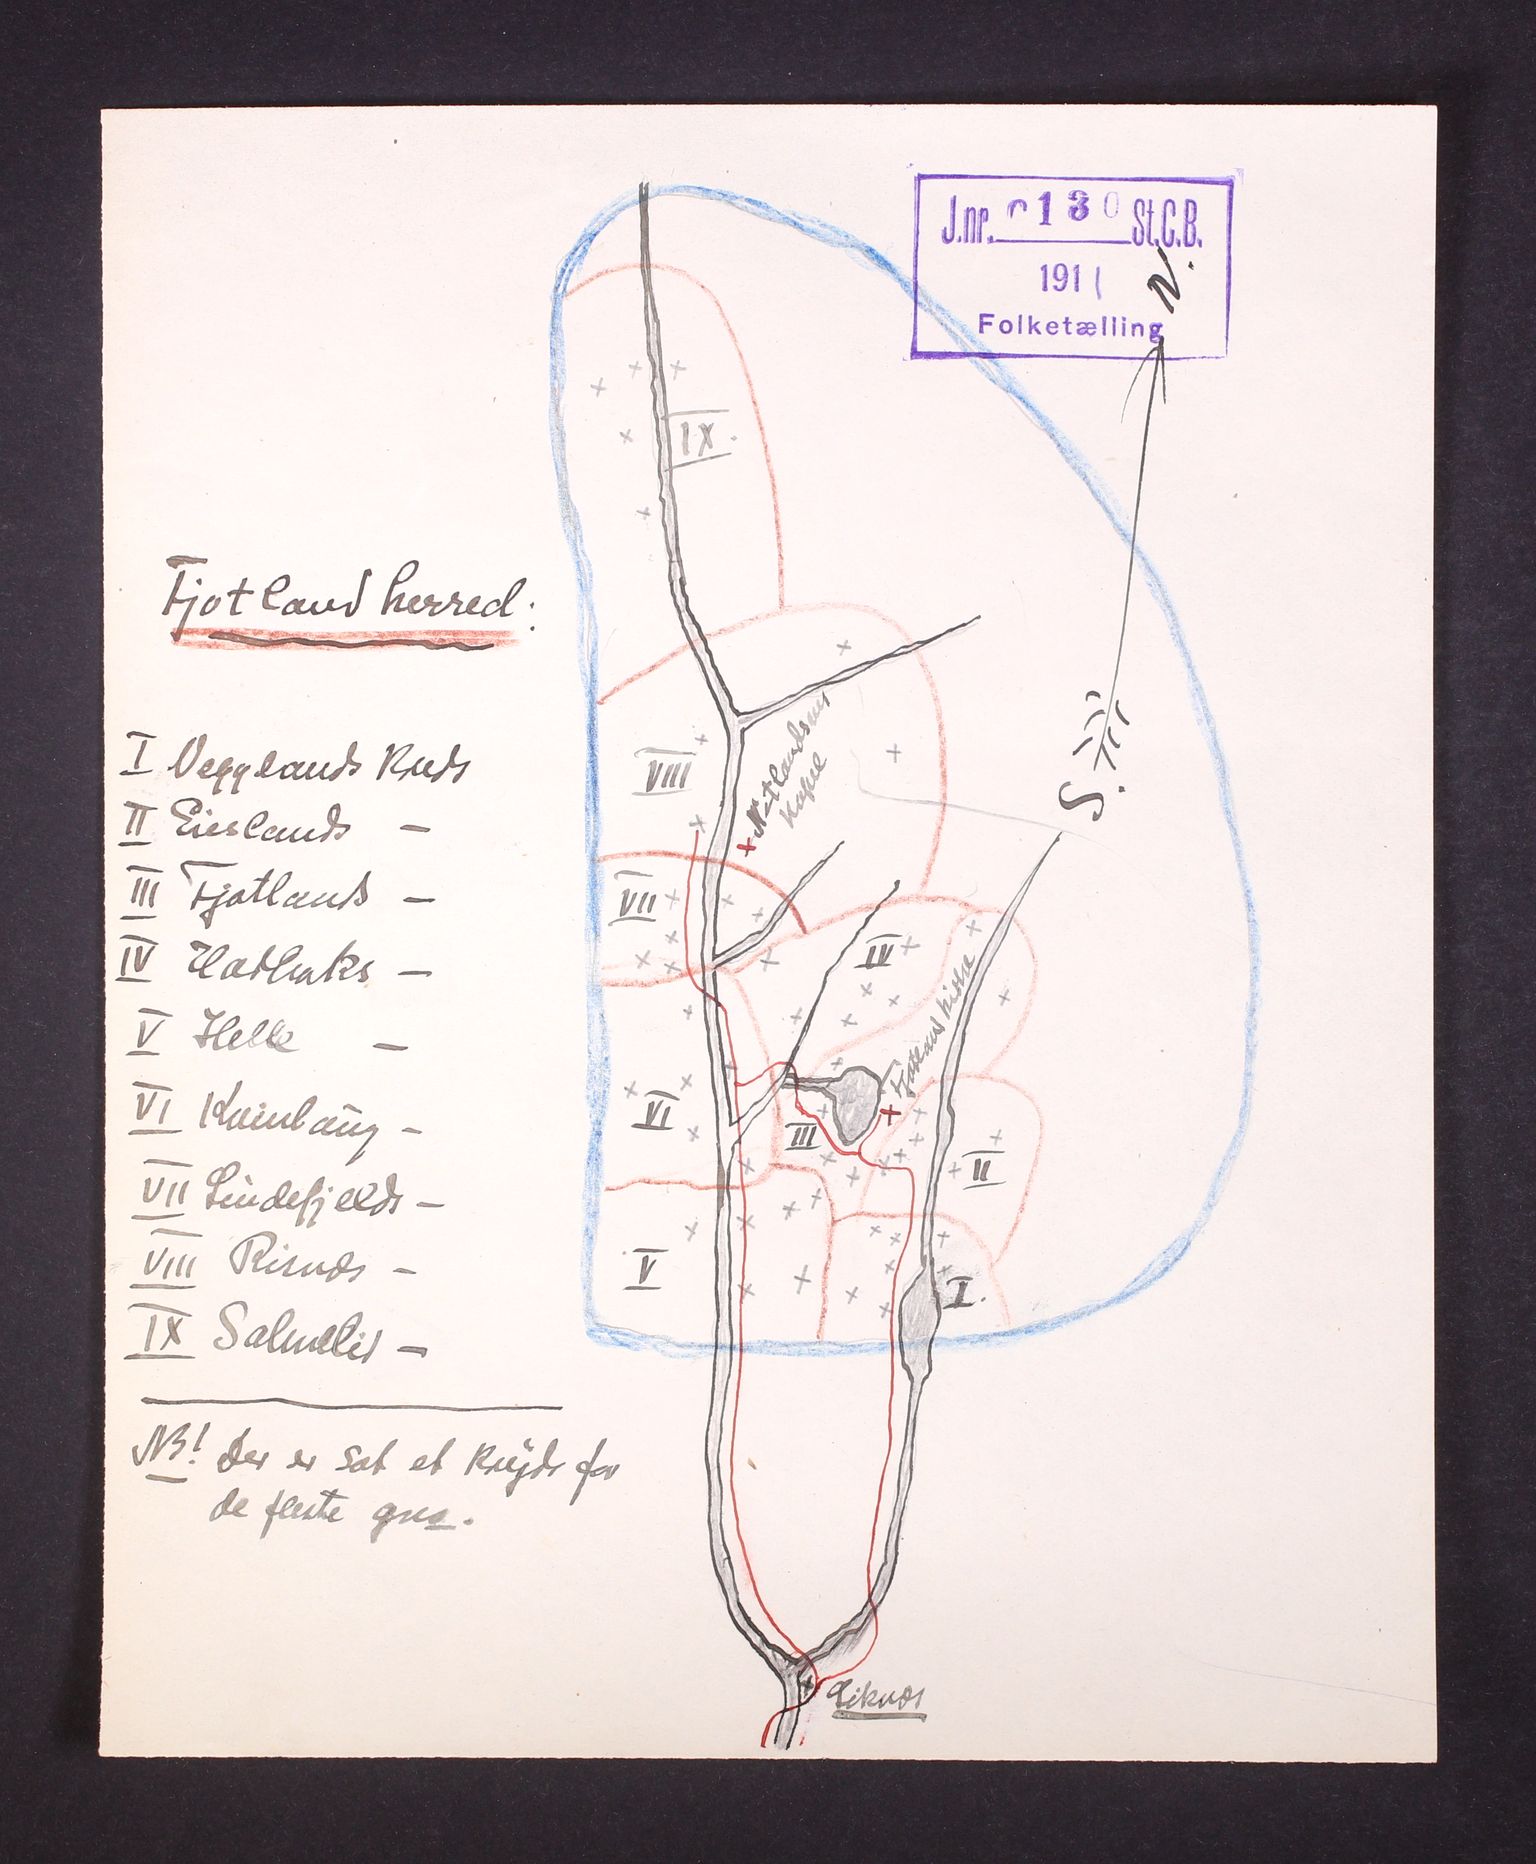 J.nr. 0130 St.C.B.
191 1
Folketælling
N.
S.
Fjotland herred:
I Vegglands Kreds
II Eieslands —
III Fjotlands —
IV
V Helle —
VI Kvinlaug —
VII Lindefjelds —
VIII Risnæs —
IX Salmelid —
NB! Der er sat et kryds for
de fleste gno.
IX.
VIII
Netlandsnes
Kapel
VII
IV
Fjotland kirke
VI
III
II
V
I.
Liknæs